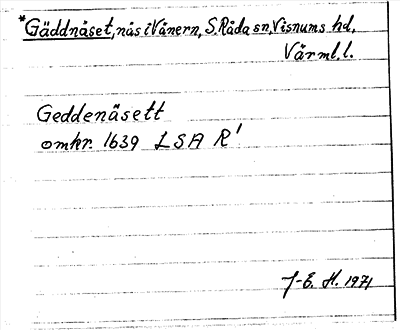 *Gäddnäset, näs i Vänern, S. Råda sn, Visnums hd,
Värml. l.
Geddenäsett
omkr. 1639 LSA R'
J-E. H. 1971